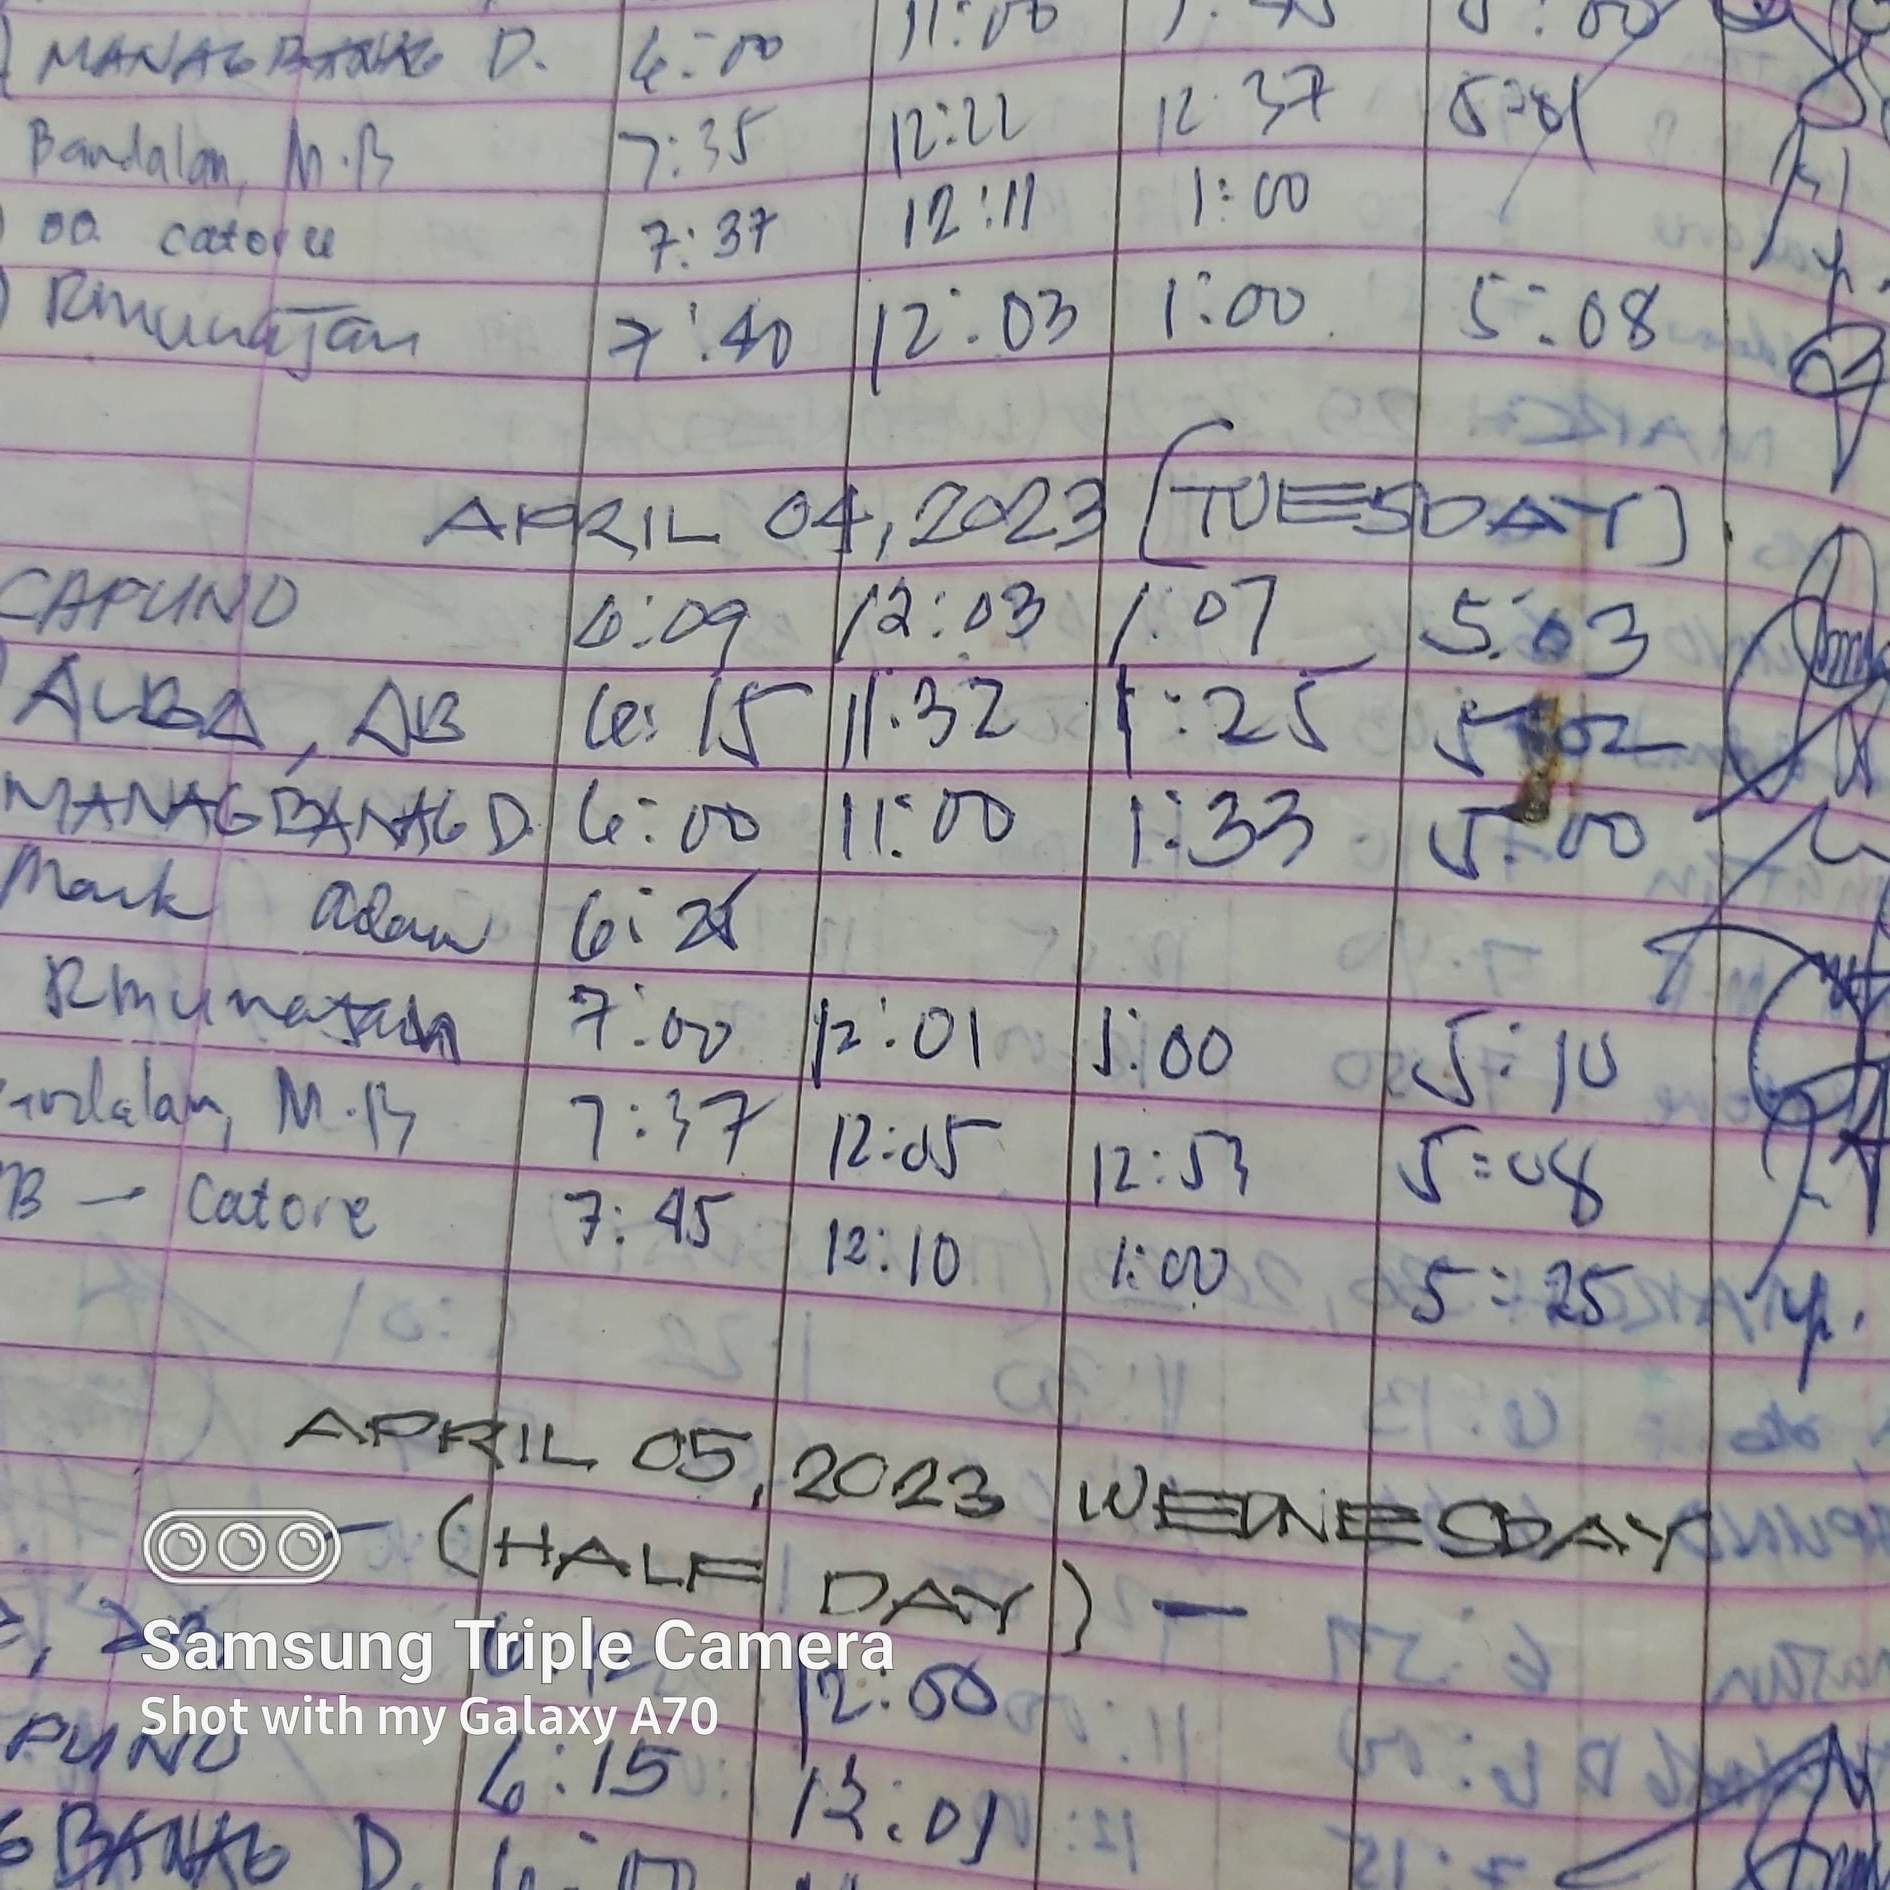 MANAGBANAG D. 6:00 11:00 5:00
Bandalan, M.B 7:35 12:22 12:37
catore 7:37 12:11 1:00
Rmunatan 7:40 12:03 1:00 5:08
APRIL 04, 2023 (TUESDAY)
CAPUNO 6:09 12:03 1:07 5:03
ALBA, AB 6:15 11:32 1:25 5:02
MANAGBANAG D. 6:00 11:00 1:33 5:00
Mark Adam
Rmunatan 7:00 12:01 1:00 5:10
ndalan, M.B 7:37 12:05 12:53 5:08
B - Catore 7:45 12:10 1:00 5:25
APRIL 05, 2023 WEDNESDAY
- (HALF DAY) -
12:00
PUNO 6:15 12:01
GBANAG D. 6:00
Samsung Triple Camera
Shot with my Galaxy A70